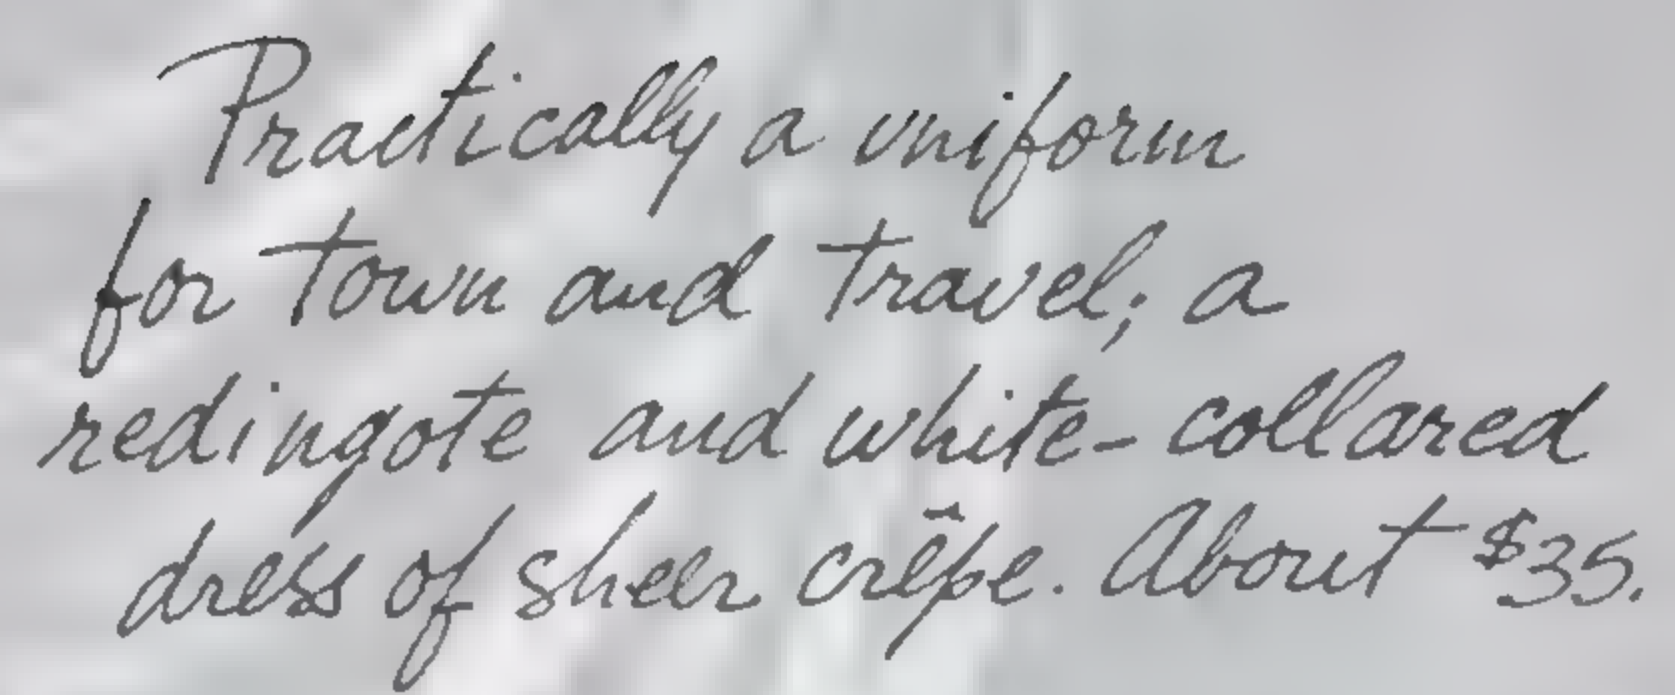 Practically a uniform
for town and travel; a
redingote and white-collared
dress of sheer crêpe. About $35.